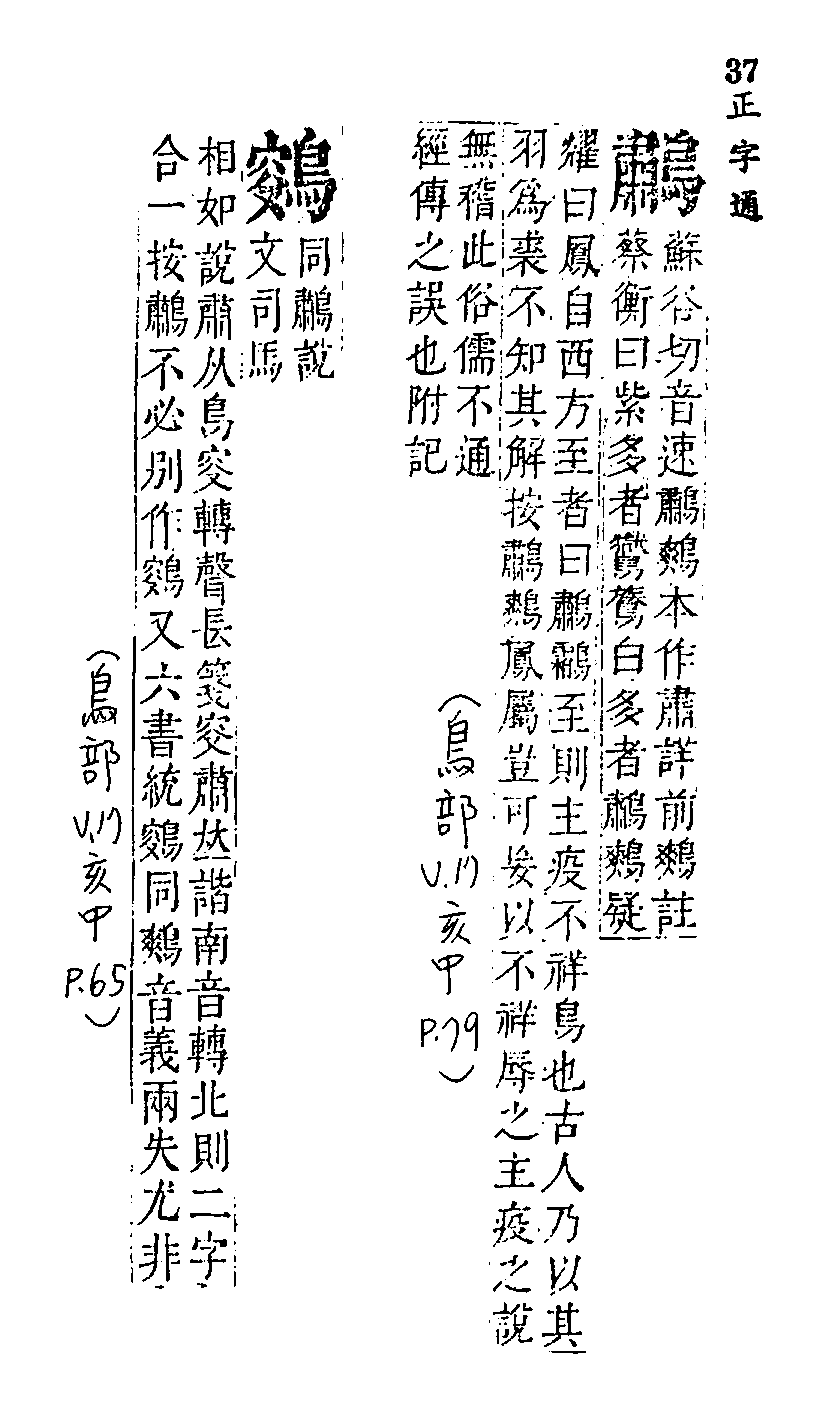 37正字通
鷫
蘇谷切音速鷫鷞本作肅詳前鷞註
蔡衡曰紫多者鸑鷟白多者鷫鷞疑
耀曰鳳自西方至者曰鷫鸘至則主疫不祥鳥也古人乃以其
羽爲裘不知其解按鷫鷞鳳屬豈可妄以不祥辱之主疫之說
無稽此俗儒不通
經傳之誤也附記
(鳥部V.17亥甲P.79)
同鷫說
文司馬
相如說肅从鳥叜轉聲長箋叜肅𠀤諧南音轉北則二字
合一按鷫不必別作又六書統同鷞音義兩失尤非
(鳥部V.17亥甲P.65)